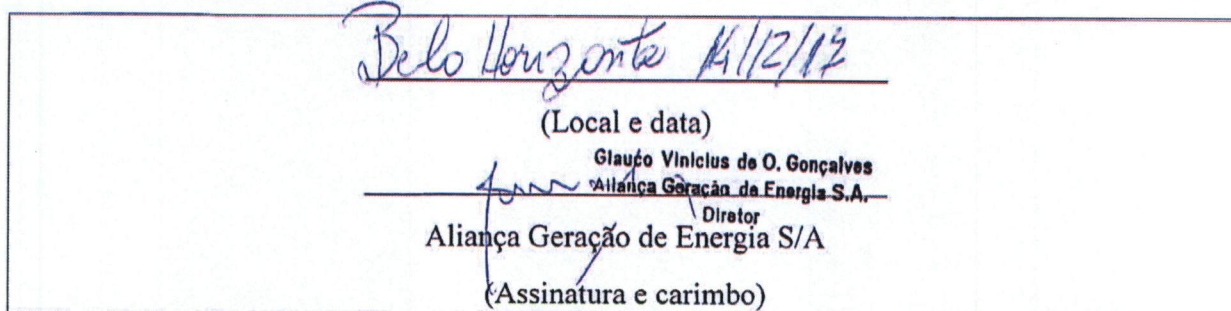 Belo Horizonte 14/12/17
(Local e data)
Glauco Vinicius de O. Gonçalves
Aliança Geração de Energia S.A.
Diretor
Aliança Geração de Energia S/A
(Assinatura e carimbo)